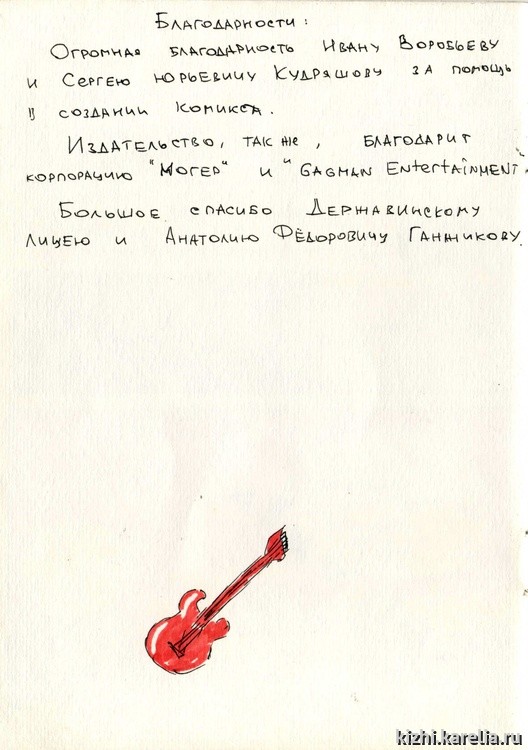 Благодарности:
Огромная благодарность Ивану Воробьеву
и Сергею Юрьевичу Кудряшову за помощь
в создании комикса.
Издательство, так же, благодарит
корпорацию "Могер" и "Gagman Entertainment".
Большое спасибо Державинскому
лицею и Анатолию Фёдоровичу Ганжикову.
kizhi.karelia.ru